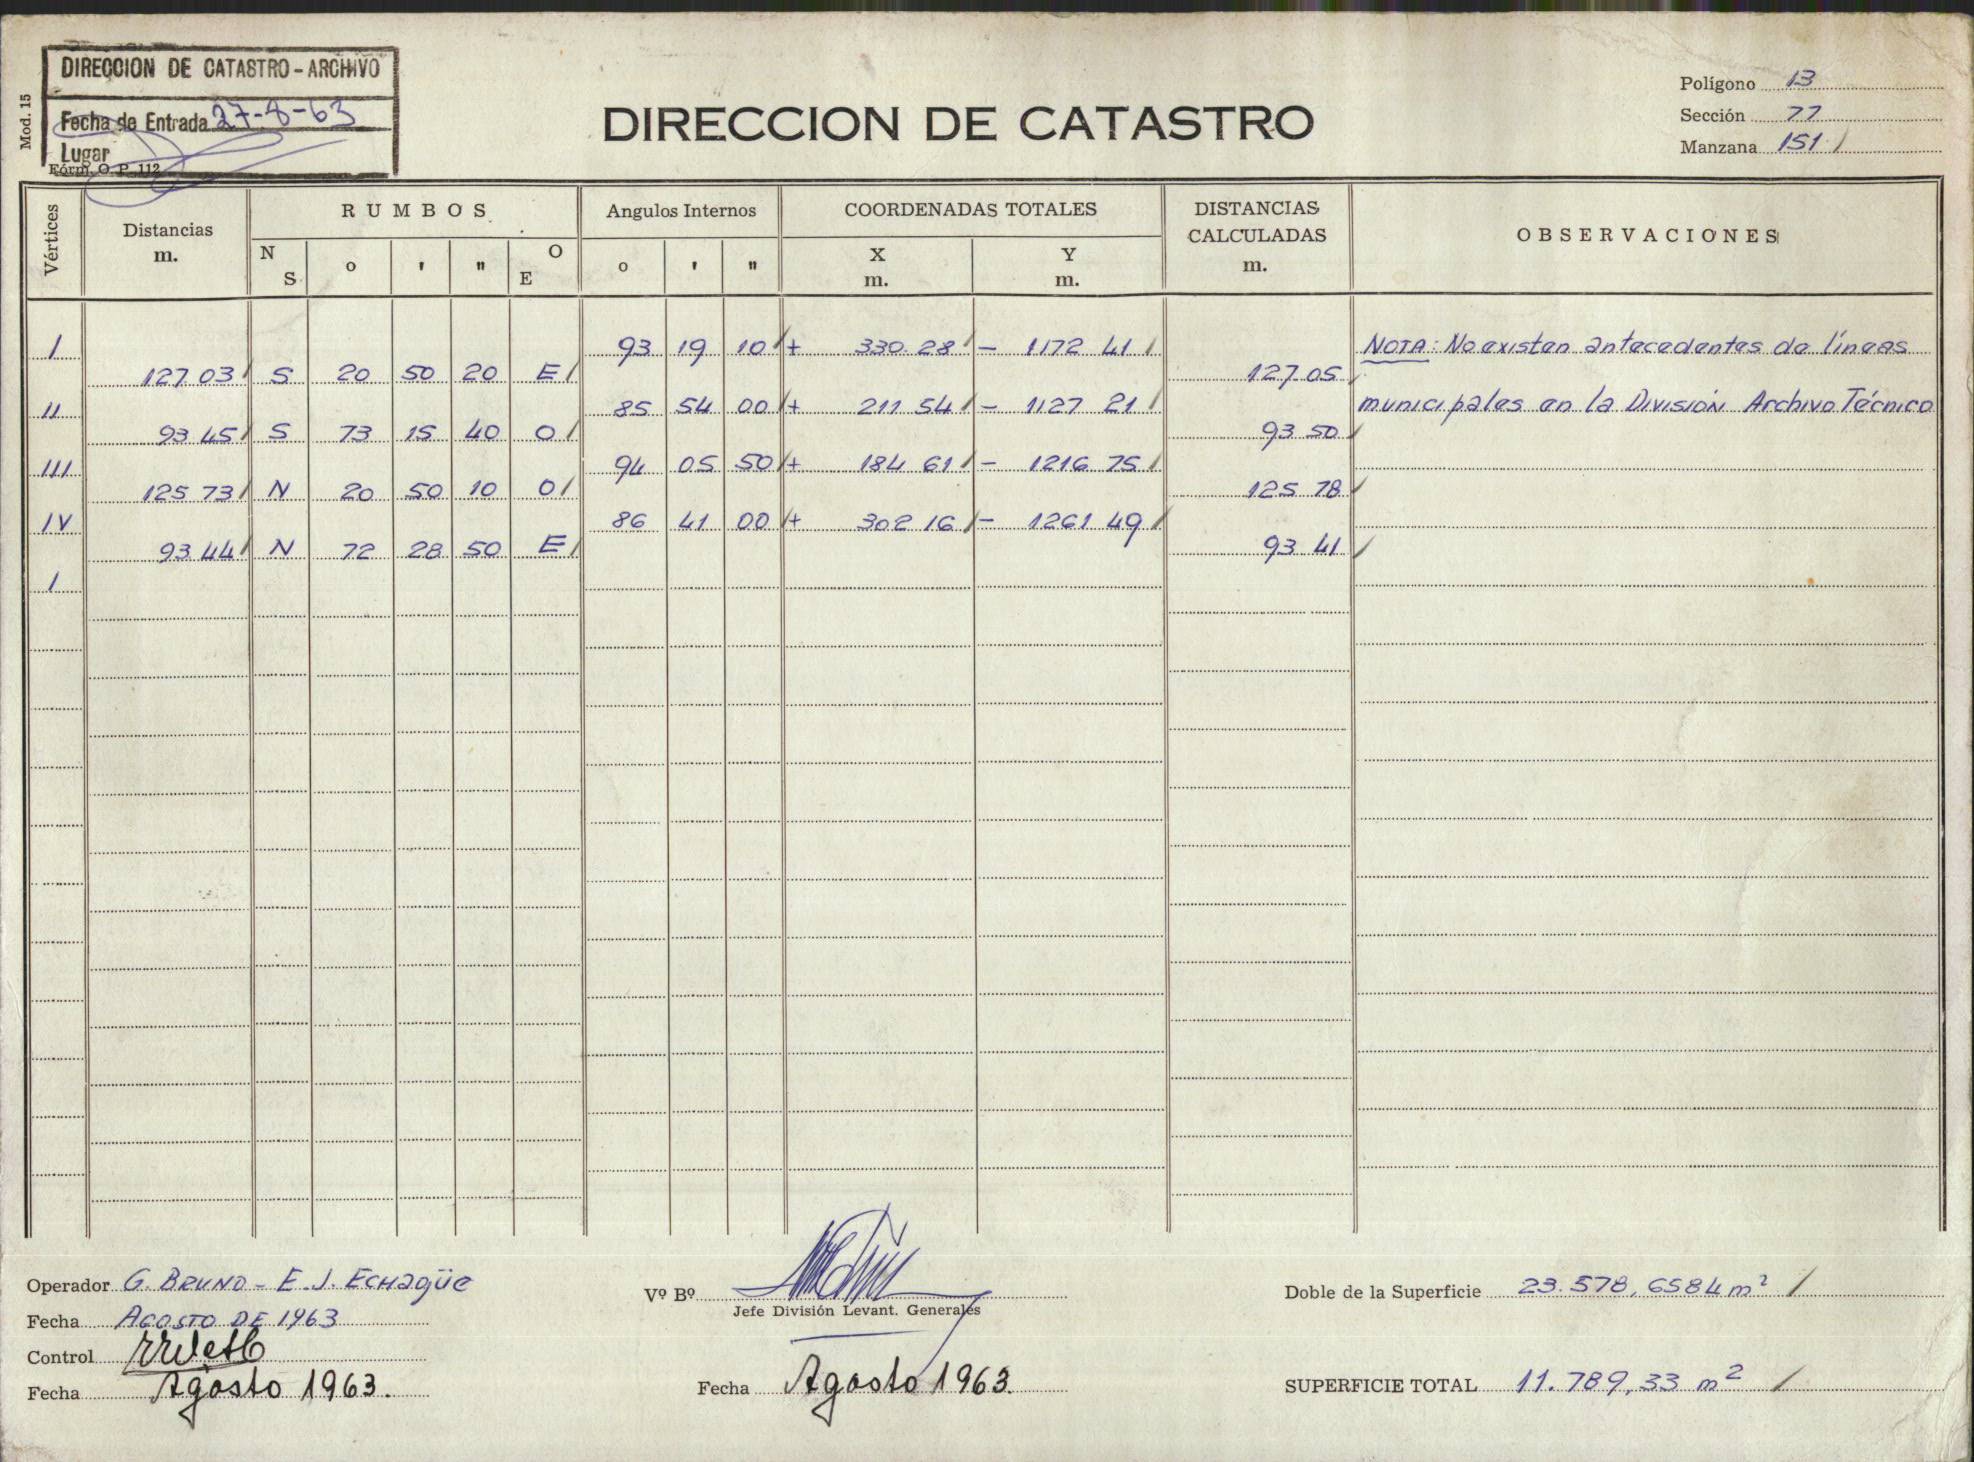 DIRECCION DE CATASTRO - ARCHIVO
Fecha de Entrada 27-8-63
Lugar
Fórm. O. P. 112
Mod. 15
DIRECCION DE CATASTRO
Polígono 13
Sección 77
Manzana 151 /
Vértices Distancias m. RUMBOS Angulos Internos COORDENADAS TOTALES DISTANCIAS CALCULADAS m. OBSERVACIONES
N S o ' " O E o ' " X m. Y m.
I 93 19 10 / + 330.28 / - 1172 41 / NOTA: No existen antecedentes de líneas
127.03 / S 20 50 20 E / 127.05 /
II 85 54 00 / + 211 54 / - 1127 21 / municipales en la División Archivo Técnico
93 45 / S 73 15 40 O / 93 50 /
III 94 05 50 / + 184 61 / - 1216 75 /
125 73 / N 20 50 10 O / 125 78 /
IV 86 41 00 / + 302 16 / - 1261 49 /
93 44 / N 72 28 50 E / 93 41 /
I
Operador G. BRUNO - E. J. ECHAGÜE
Fecha AGOSTO DE 1963
Control
Fecha Agosto 1963.
Vº Bº
Jefe División Levant. Generales
Fecha Agosto 1963.
Doble de la Superficie 23.578,6584 m² /
SUPERFICIE TOTAL 11.789,33 m² /